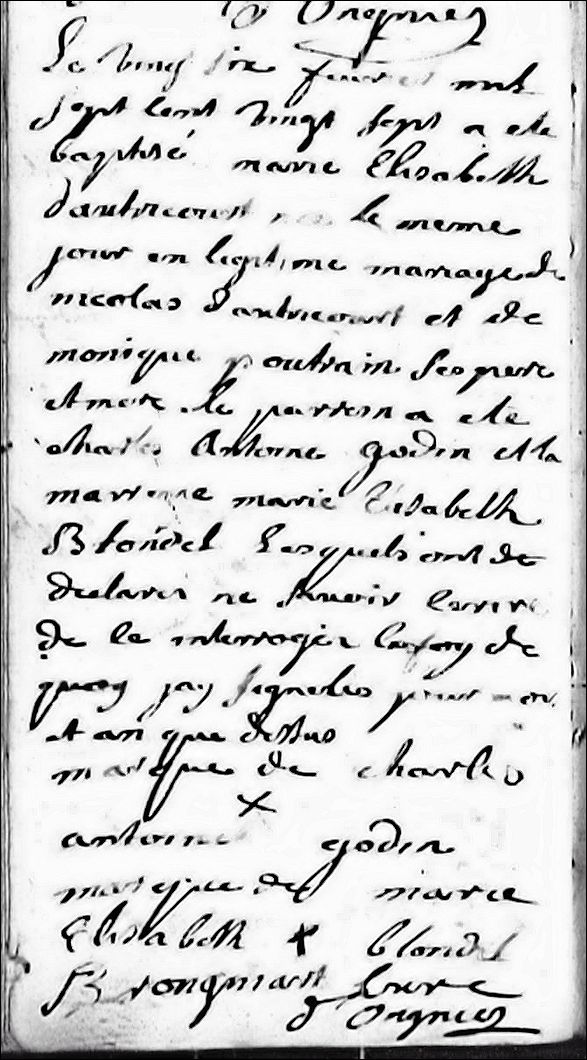 d'Ongnies
Le vingt six feuvrier mil
sept cent vingt sept a ete
baptisé marie Elisabeth
dautricourt nee le meme
jour en legitime mariage de
nicolas dautricourt et de
monique poutrain ses pere
et mere le parrein a ete
charles Antoine godin et la
marreine marie Elisabeth
Blondel lesquels ont de
declarer ne savoir escrire
de ce interroges en foy de
quoy jay signe les jour mois
et an que dessus
marque de charles
x
antoine godin
marque de marie
Elisabeth x blondel
Brongniart curé
d'Ongnies